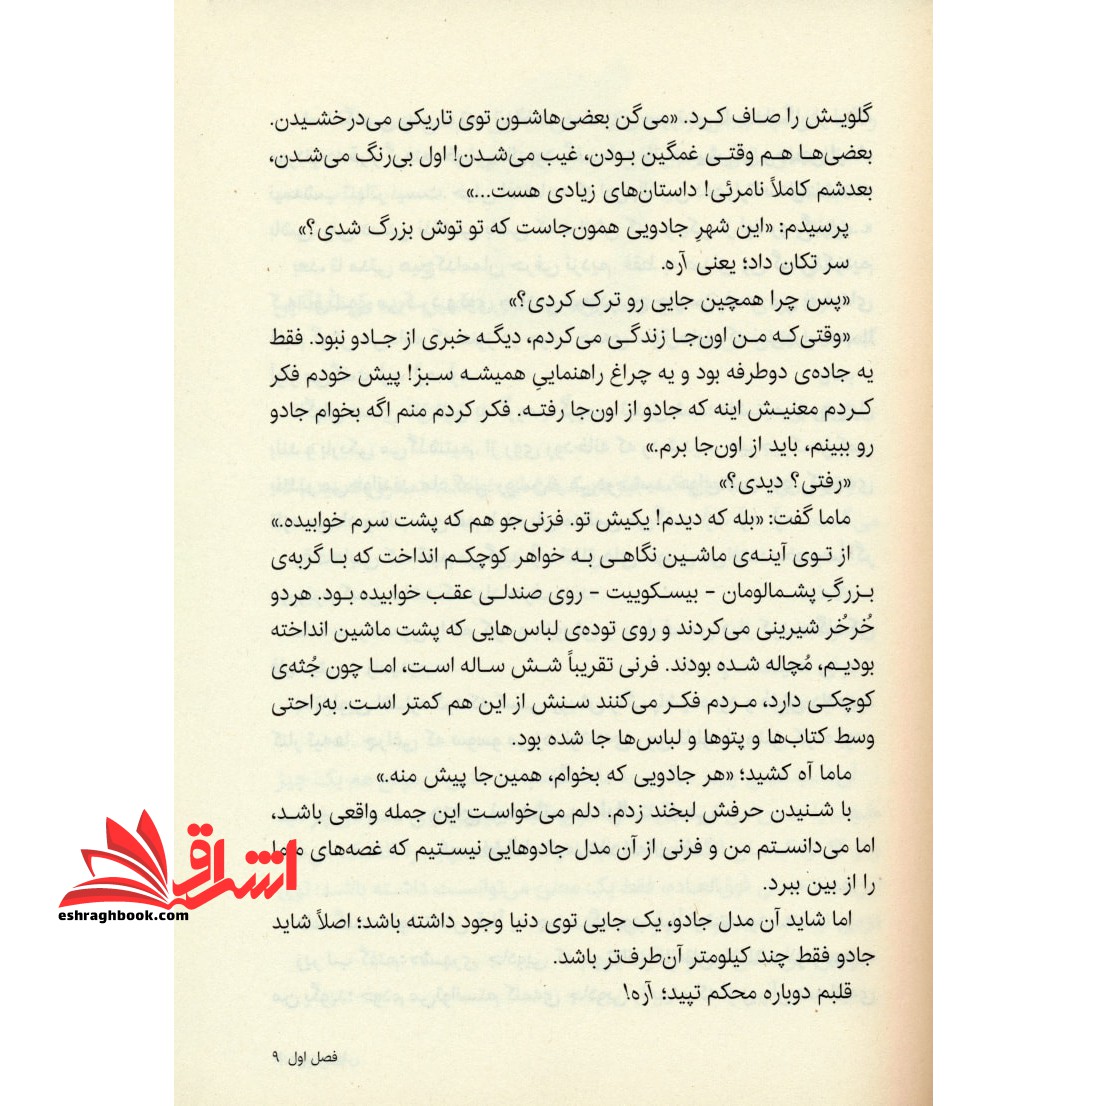 گلویش را صاف کرد. «می‌گن بعضی‌هاشون توی تاریکی می‌درخشیدن.
بعضی‌ها هم وقتی غمگین بودن، غیب می‌شدن! اول بی‌رنگ می‌شدن،
بعدشم کاملاً نامرئی! داستان‌های زیادی هست...»
پرسیدم: «این شهرِ جادویی همون‌جاست که تو توش بزرگ شدی؟»
سر تکان داد؛ یعنی آره.
«پس چرا همچین جایی رو ترک کردی؟»
«وقتی‌که من اون‌جا زندگی می‌کردم، دیگه خبری از جادو نبود. فقط
یه جاده‌ی دوطرفه بود و یه چراغ راهنماییِ همیشه سبز! پیش خودم فکر
کردم معنیش اینه که جادو از اون‌جا رفته. فکر کردم منم اگه بخوام جادو
رو ببینم، باید از اون‌جا برم.»
«رفتی؟ دیدی؟»
ماما گفت: «بله که دیدم! یکیش تو. فِرَنی‌جو هم که پشت سرم خوابیده.»
از توی آینه‌ی ماشین نگاهی به خواهر کوچکم انداخت که با گربه‌ی
بزرگِ پشمالومان – بیسکوییت – روی صندلی عقب خوابیده بود. هردو
خُرخُر شیرینی می‌کردند و روی توده‌ی لباس‌هایی که پشت ماشین انداخته
بودیم، مُچاله شده بودند. فرنی تقریباً شش ساله است، اما چون جُثه‌ی
کوچکی دارد، مردم فکر می‌کنند سنش از این هم کمتر است. به‌راحتی
وسط کتاب‌ها و پتوها و لباس‌ها جا شده بود.
ماما آه کشید؛ «هر جادویی که بخوام، همین‌جا پیش منه.»
با شنیدن حرفش لبخند زدم. دلم می‌خواست این جمله واقعی باشد،
اما می‌دانستم من و فرنی از آن مدل جادوهایی نیستیم که غصه‌های ماما
را از بین ببرد.
اما شاید آن مدل جادو، یک جایی توی دنیا وجود داشته باشد؛ اصلاً شاید
جادو فقط چند کیلومتر آن‌طرف‌تر باشد.
قلبم دوباره محکم تپید؛ آره!
فصل اول ۹
اشراق
eshraghbook.com